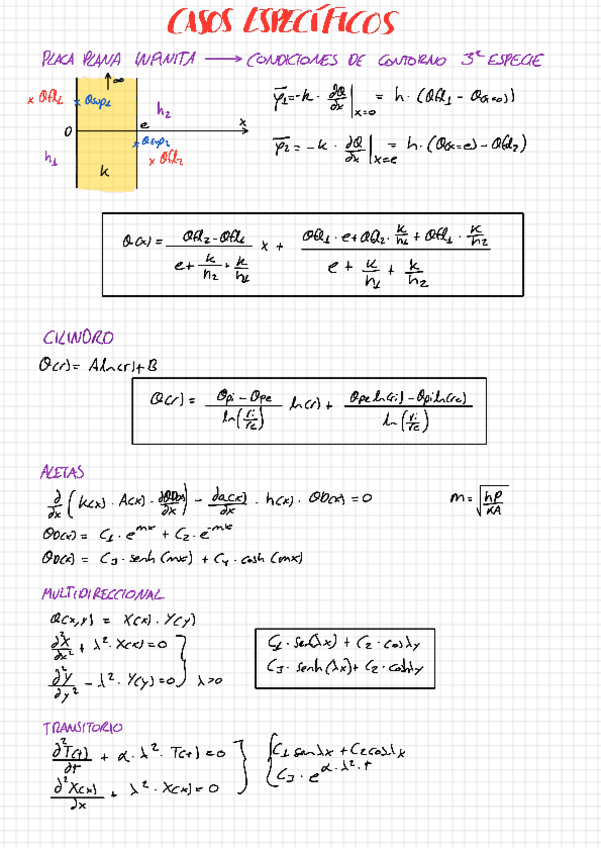 CASOS ESPECÍFICOS
PLACA PLANA INFINITA → CONDICIONES DE CONTORNO 3ª ESPECIE
∞
x θfl1
x θsup1
h2
φ1 = -k · ∂θ/∂x |x=0 = h · (θfl1 - θ(x=0))
0
e
x
x θsup2
h1
x θfl2
k
φ2 = -k · ∂θ/∂x |x=e = h · (θ(x=e) - θfl2)
θ(x) = (θfl2 - θfl1)/(e + k/h2 + k/h1) x + (θfl1 · e + θfl2 · k/h1 + θfl1 · k/h2)/(e + k/h1 + k/h2)
CILINDRO
θ(r) = A ln(r) + B
θ(r) = (θpi - θpe)/ln(ri/re) ln(r) + (θpe ln(ri) - θpi ln(re))/ln(ri/re)
ALETAS
∂/∂x (k(x) · A(x) · ∂θD(x)/∂x) - ∂a(x)/∂x · h(x) · θD(x) = 0
m = √(hP/kA)
θD(x) = C1 · e^mx + C2 · e^-mx
θD(x) = C3 · senh(mx) + C4 · cosh(mx)
MULTIDIRECCIONAL
θ(x,y) = X(x) · Y(y)
∂²X/∂x² + λ² · X(x) = 0
∂²Y/∂y² - λ² · Y(y) = 0
λ>0
C1 · sen(λx) + C2 · cosλy
C3 · senh(λx) + C2 · coshλy
TRANSITORIO
∂²T(t)/∂t + α · λ² · T(t) = 0
∂²X(x)/∂x + λ² · X(x) = 0
C1 senλx + C2 cosλx
C3 · e^α·λ²·t